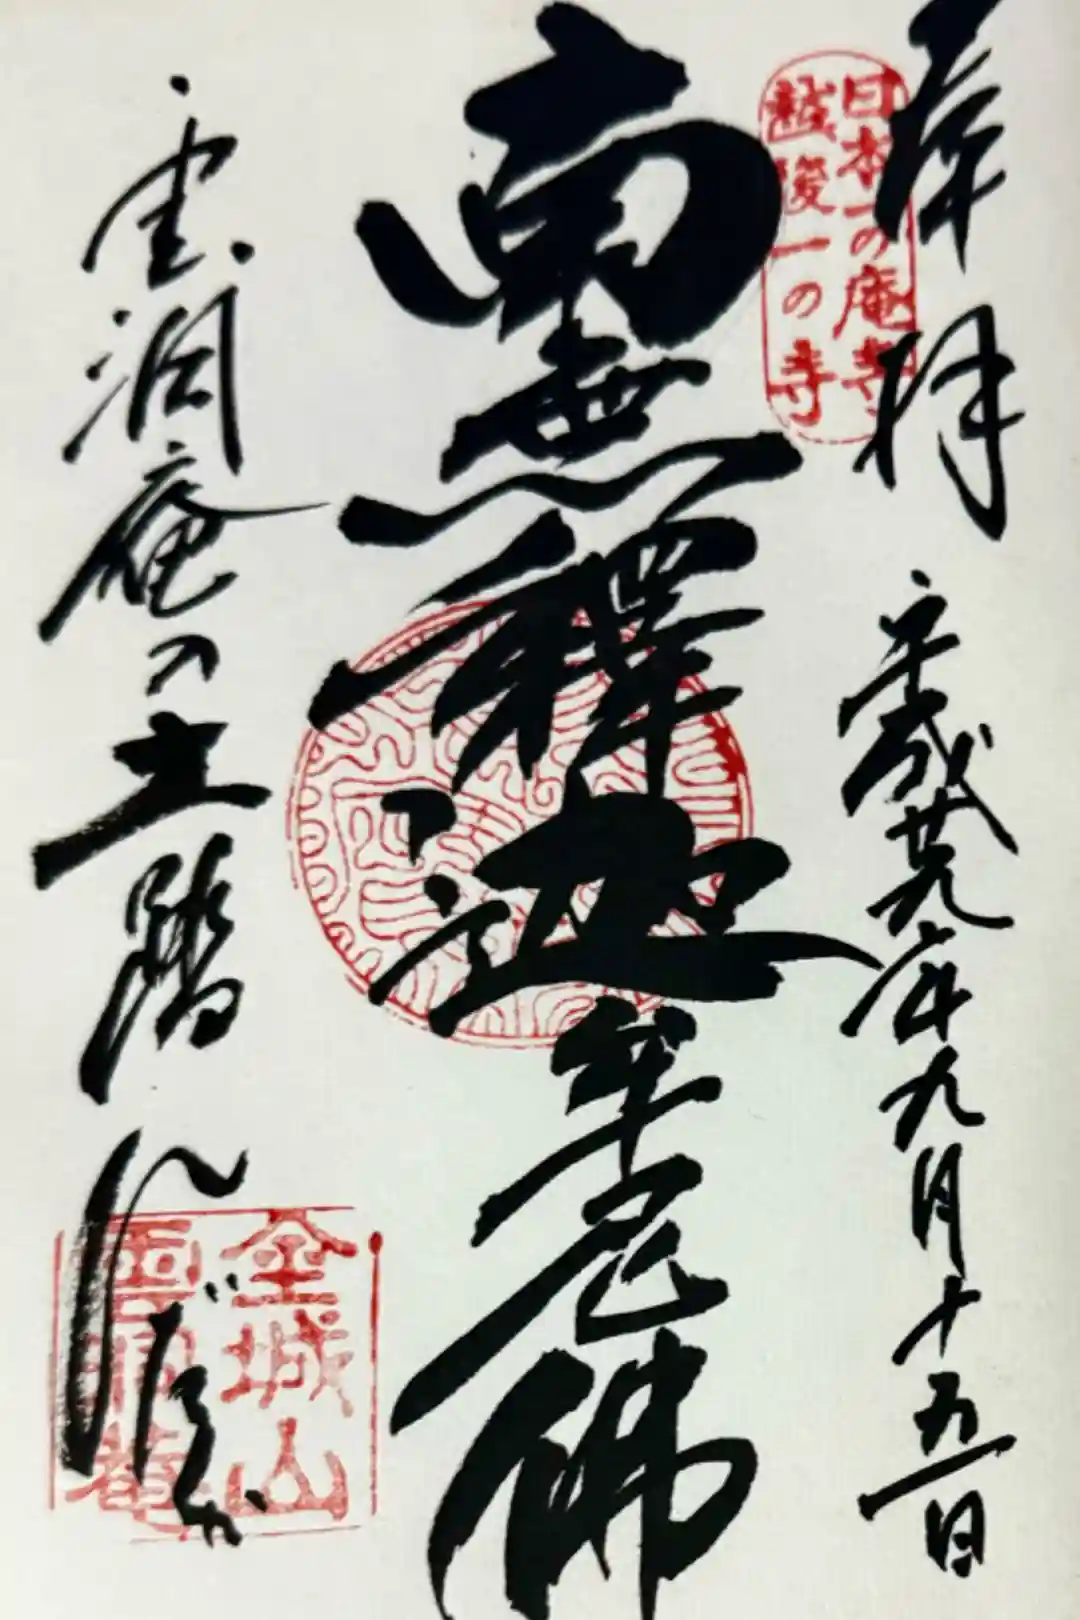 奉拝
平成廿九年九月十五日
日本一の庵寺
越後一の寺
南無釋迦牟尼佛
雲洞庵の土踏んだか
金城山
雲洞菴